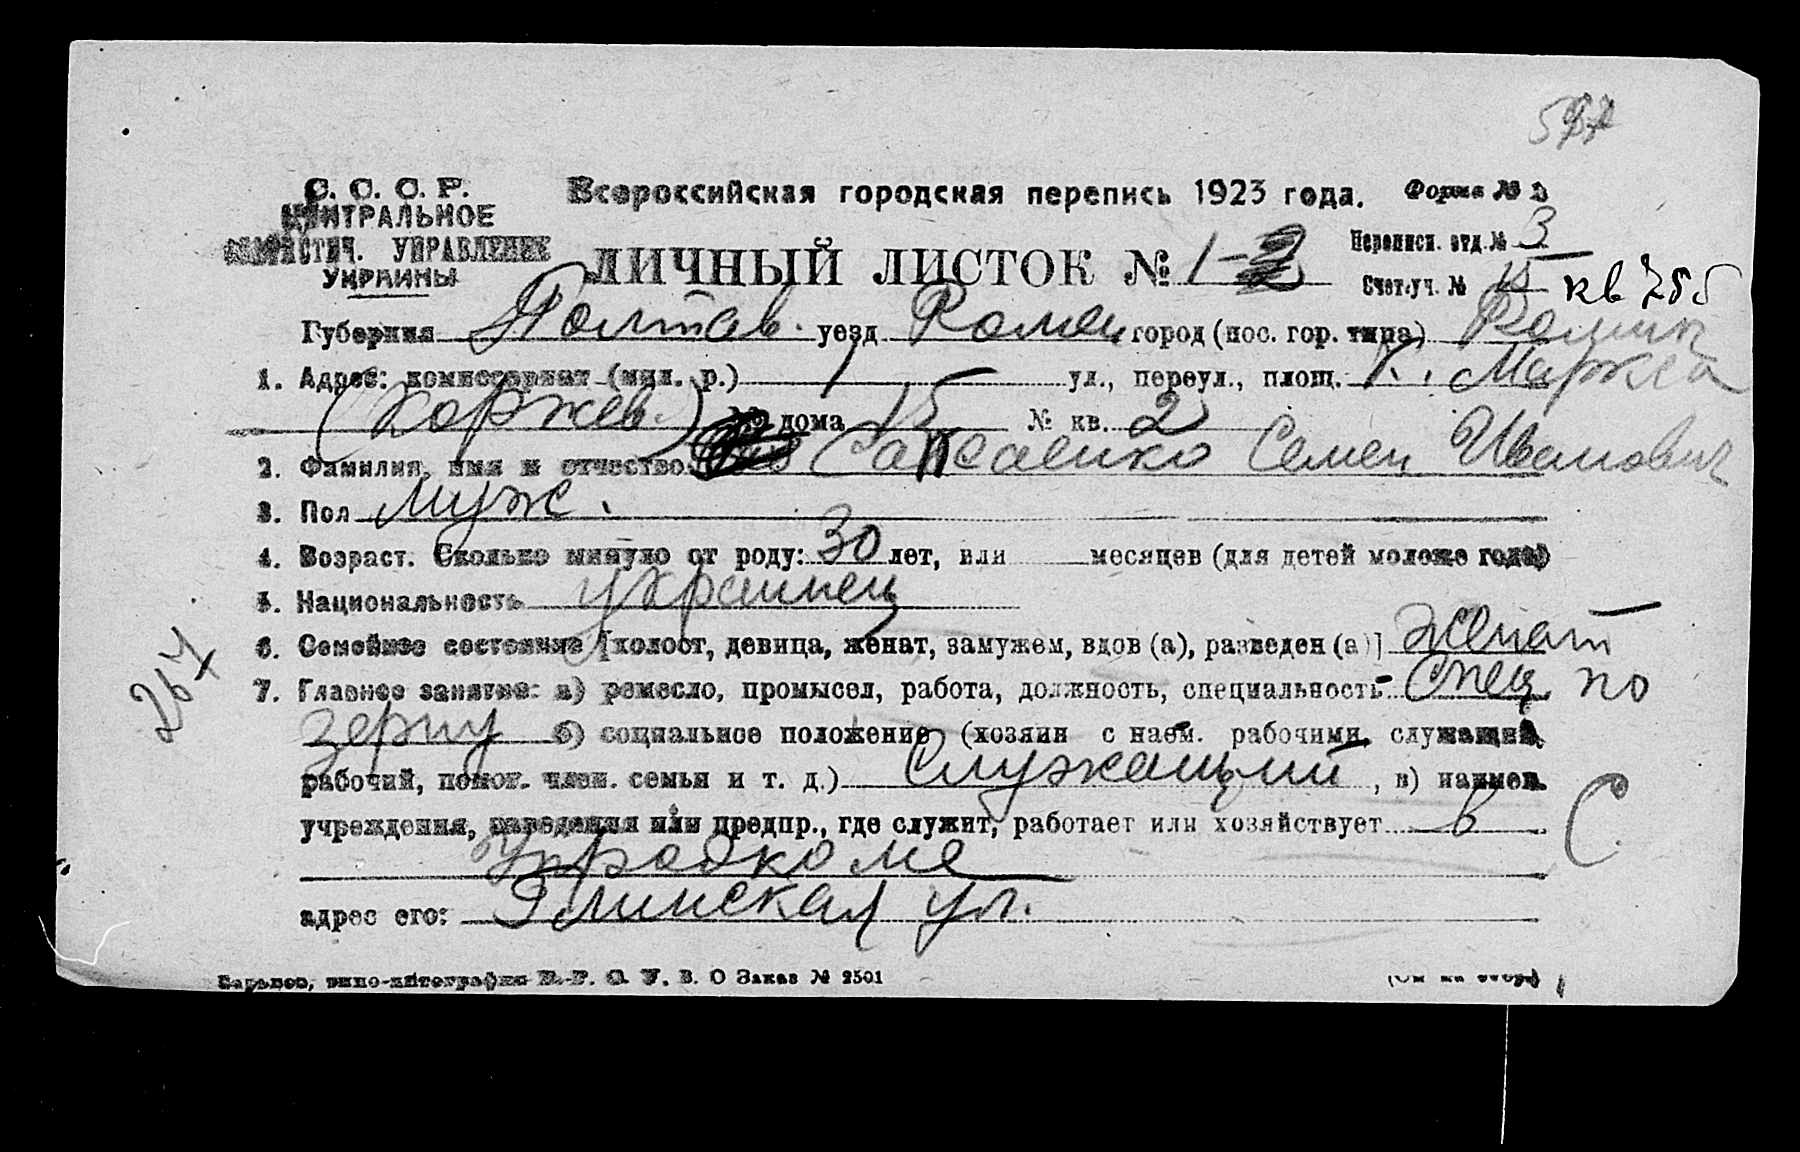 С. С. С. Р.
ЦЕНТРАЛЬНОЕ
СТАТИСТИЧ. УПРАВЛЕНИЕ
УКРАИНЫ
Всероссийская городская перепись 1923 года.
Форма № 3
ЛИЧНЫЙ ЛИСТОК № 1-2
Переписн. отд. № 3
Счетн. уч. № 15 кв
Губерния Полтав. уезд Ромен город (пос. гор. типа) Ромны
1. Адрес: комиссариат (мил. р.) 1 ул., переул., площ. К. Маркса
(Коржев.) № дома 15 № кв. 2
2. Фамилия, имя и отчество Семен Иванович
3. Пол муж.
4. Возраст. Сколько минуло от роду: 30 лет, или месяцев (для детей моложе года)
5. Национальность украинец
6. Семейное состояние [холост, девица, женат, замужем, вдов (а), разведен (а)] женат
7. Главное занятие: а) ремесло, промысел, работа, должность, специальность спец по
зерну б) социальное положение (хозяин с наем. рабочими, служащий,
рабочий, помог. член. семьи и т. д.) Служащий, в) наимен.
учреждения, заведения или предпр., где служит, работает или хозяйствует в
адрес его: Глинская ул.
Харьков, типо-литография В. О Заказ № 2501
(См на обор)
267
С